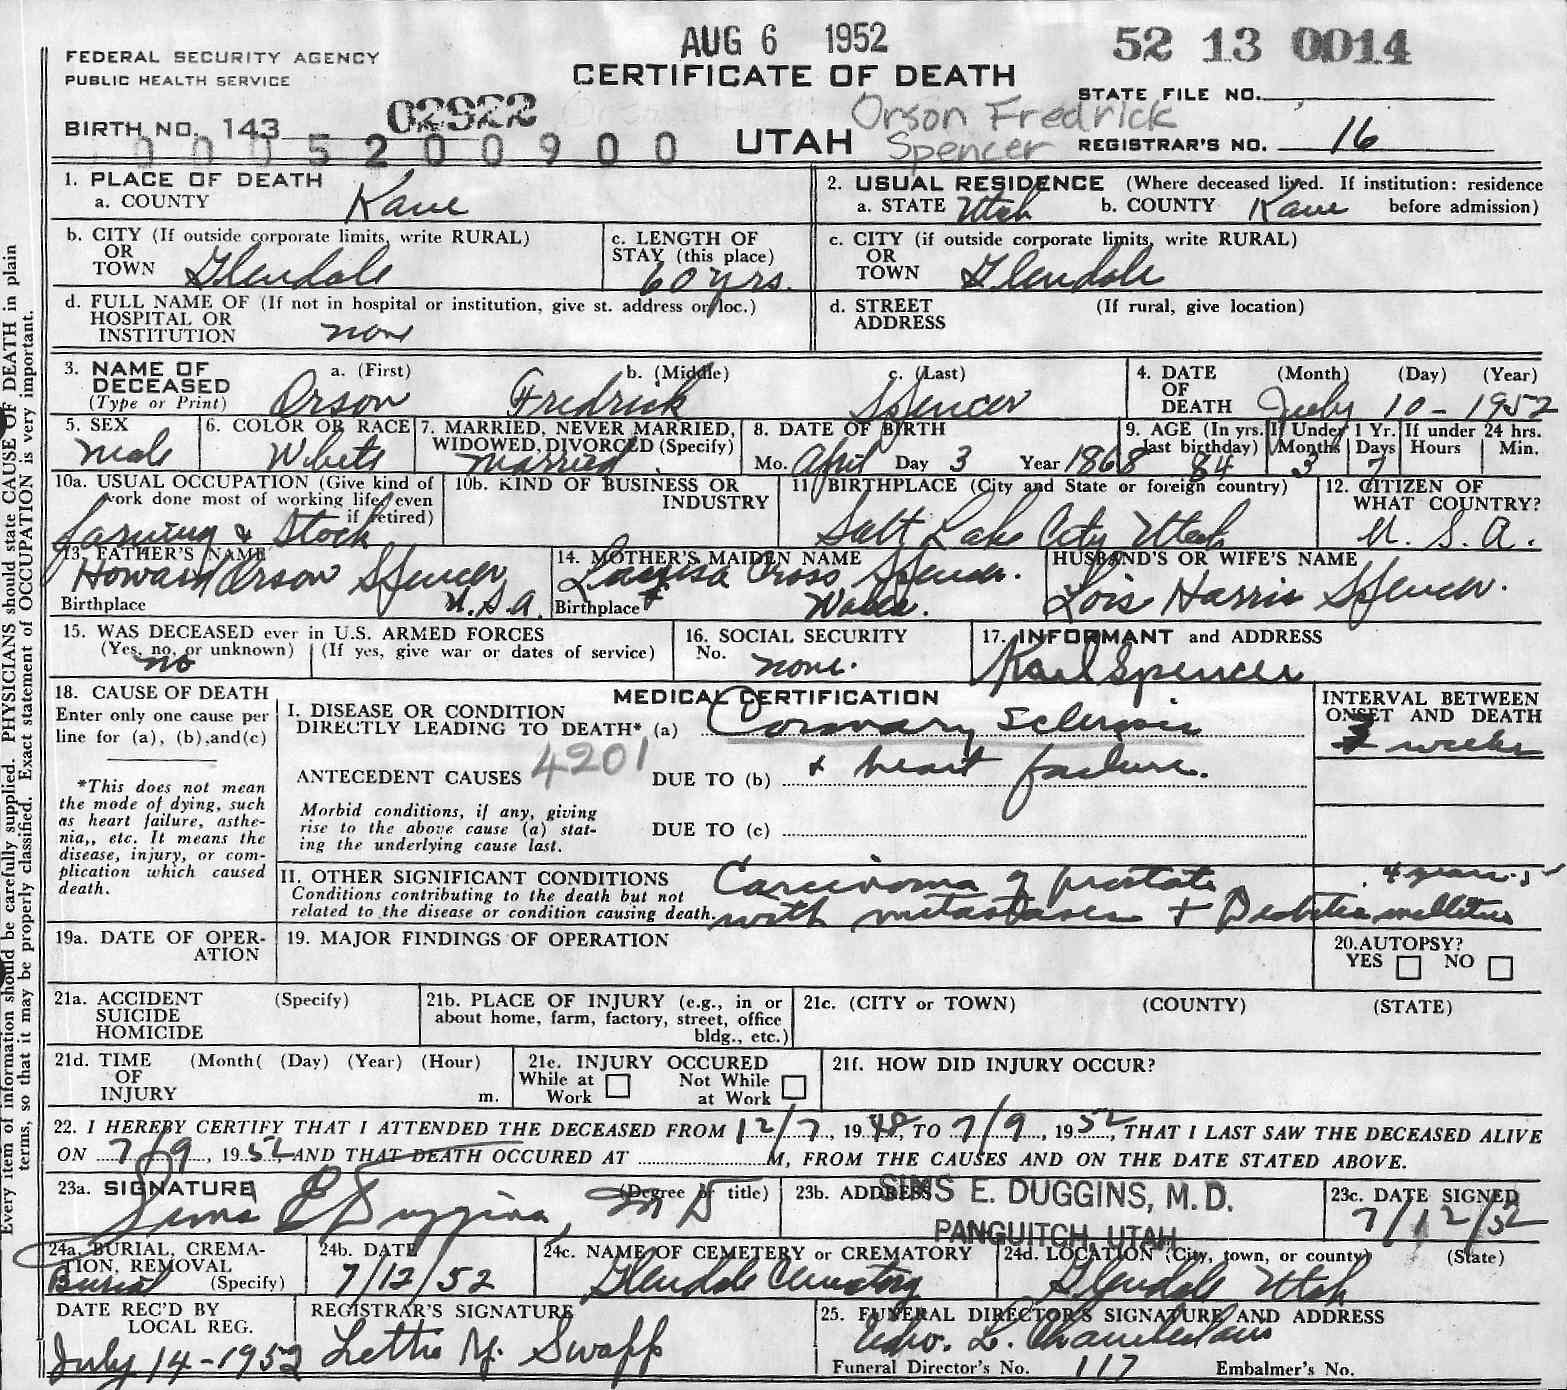 AUG 6 1952
52 13 0014
FEDERAL SECURITY AGENCY
PUBLIC HEALTH SERVICE
CERTIFICATE OF DEATH
STATE FILE NO.
02922
BIRTH NO. 143
0 0 0 5 2 0 0 9 0 0
UTAH
Orson Fredrick
Spencer
REGISTRAR'S NO. 16
1. PLACE OF DEATH
a. COUNTY Kane
2. USUAL RESIDENCE (Where deceased lived. If institution: residence
a. STATE Utah b. COUNTY Kane before admission)
b. CITY (If outside corporate limits, write RURAL)
OR
TOWN Glendale
c. LENGTH OF
STAY (this place)
60 yrs.
c. CITY (if outside corporate limits, write RURAL)
OR
TOWN Glendale
d. FULL NAME OF (If not in hospital or institution, give st. address or loc.)
HOSPITAL OR
INSTITUTION none
d. STREET (If rural, give location)
ADDRESS
3. NAME OF
DECEASED
(Type or Print)
a. (First) b. (Middle) c. (Last)
Orson Fredrick Spencer
4. DATE (Month) (Day) (Year)
OF
DEATH July 10 - 1952
5. SEX
Male
6. COLOR OR RACE
White
7. MARRIED, NEVER MARRIED,
WIDOWED, DIVORCED (Specify)
Married
8. DATE OF BIRTH
Mo. April Day 3 Year 1868
9. AGE (In yrs.
last birthday) 84
If Under 1 Yr.
Months Days
3 7
If under 24 hrs.
Hours Min.
10a. USUAL OCCUPATION (Give kind of
work done most of working life, even
if retired)
Farming & Stock
10b. KIND OF BUSINESS OR
INDUSTRY
11. BIRTHPLACE (City and State or foreign country)
Salt Lake City Utah
12. CITIZEN OF
WHAT COUNTRY?
U. S. A.
13. FATHER'S NAME
Howard Orson Spencer
Birthplace U.S.A.
14. MOTHER'S MAIDEN NAME
Louisa Cross Spencer.
Birthplace Wales.
HUSBAND'S OR WIFE'S NAME
Lois Harris Spencer.
15. WAS DECEASED ever in U.S. ARMED FORCES
(Yes, no, or unknown) (If yes, give war or dates of service)
no
16. SOCIAL SECURITY
No. none.
17. INFORMANT and ADDRESS
Karl Spencer
18. CAUSE OF DEATH
Enter only one cause per
line for (a), (b), and (c)
*This does not mean
the mode of dying, such
as heart failure, asthe-
nia,, etc. It means the
disease, injury, or com-
plication which caused
death.
MEDICAL CERTIFICATION
I. DISEASE OR CONDITION
DIRECTLY LEADING TO DEATH* (a) Coronary Sclerosis
ANTECEDENT CAUSES 4201 DUE TO (b) + heart failure.
Morbid conditions, if any, giving
rise to the above cause (a) stat-
ing the underlying cause last.
DUE TO (c)
INTERVAL BETWEEN
ONSET AND DEATH
weeks
II. OTHER SIGNIFICANT CONDITIONS
Conditions contributing to the death but not
related to the disease or condition causing death.
Carcinoma of prostate
with metastases + Diabetes mellitus
4 years
19a. DATE OF OPER-
ATION
19. MAJOR FINDINGS OF OPERATION
20. AUTOPSY?
YES NO
21a. ACCIDENT (Specify)
SUICIDE
HOMICIDE
21b. PLACE OF INJURY (e.g., in or
about home, farm, factory, street, office
bldg., etc.)
21c. (CITY or TOWN) (COUNTY) (STATE)
21d. TIME (Month( (Day) (Year) (Hour)
OF
INJURY m.
21e. INJURY OCCURED
While at Work Not While at Work
21f. HOW DID INJURY OCCUR?
22. I HEREBY CERTIFY THAT I ATTENDED THE DECEASED FROM 12/7, 1948, TO 7/9, 1952, THAT I LAST SAW THE DECEASED ALIVE
ON 7/9, 1952, AND THAT DEATH OCCURED AT M, FROM THE CAUSES AND ON THE DATE STATED ABOVE.
23a. SIGNATURE (Degree or title)
Sims E Duggins, MD
23b. ADDRESS
SIMS E. DUGGINS, M.D.
PANGUITCH, UTAH
23c. DATE SIGNED
7/12/52
24a. BURIAL, CREMA-
TION, REMOVAL
Burial (Specify)
24b. DATE
7/12/52
24c. NAME OF CEMETERY or CREMATORY
Glendale Cemetery
24d. LOCATION (City, town, or county) (State)
Glendale Utah
DATE REC'D BY
LOCAL REG.
July 14-1952
REGISTRAR'S SIGNATURE
Lettie M. Swapp
25. FUNERAL DIRECTOR'S SIGNATURE AND ADDRESS
L. Chamberlain
Funeral Director's No. 117 Embalmer's No.
Every item of information should be carefully supplied. PHYSICIANS should state CAUSE OF DEATH in plain
terms, so that it may be properly classified. Exact statement of OCCUPATION is very important.